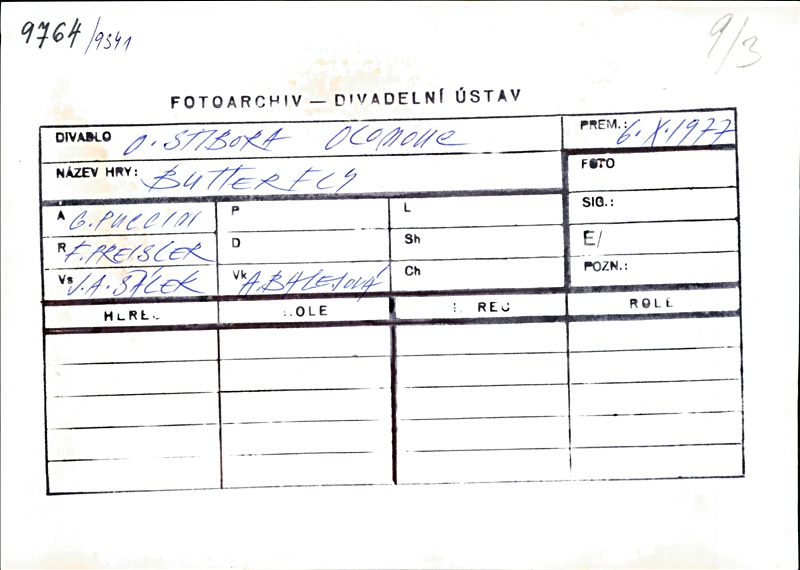 9764/9341
9/3
FOTOARCHIV — DIVADELNÍ ÚSTAV
DIVADLO O. STIBORA OLOMOUC
PREM.: 6.X.1977
NÁZEV HRY: BUTTERFLY
FOTO
A G. PUCCINI P L
SIG.:
R F. PREISLER D Sh
E/
Vs J.A. ŠÁLEK Vk A. BALEJOVÁ Ch
POZN.:
HEREC ROLE HEREC ROLE